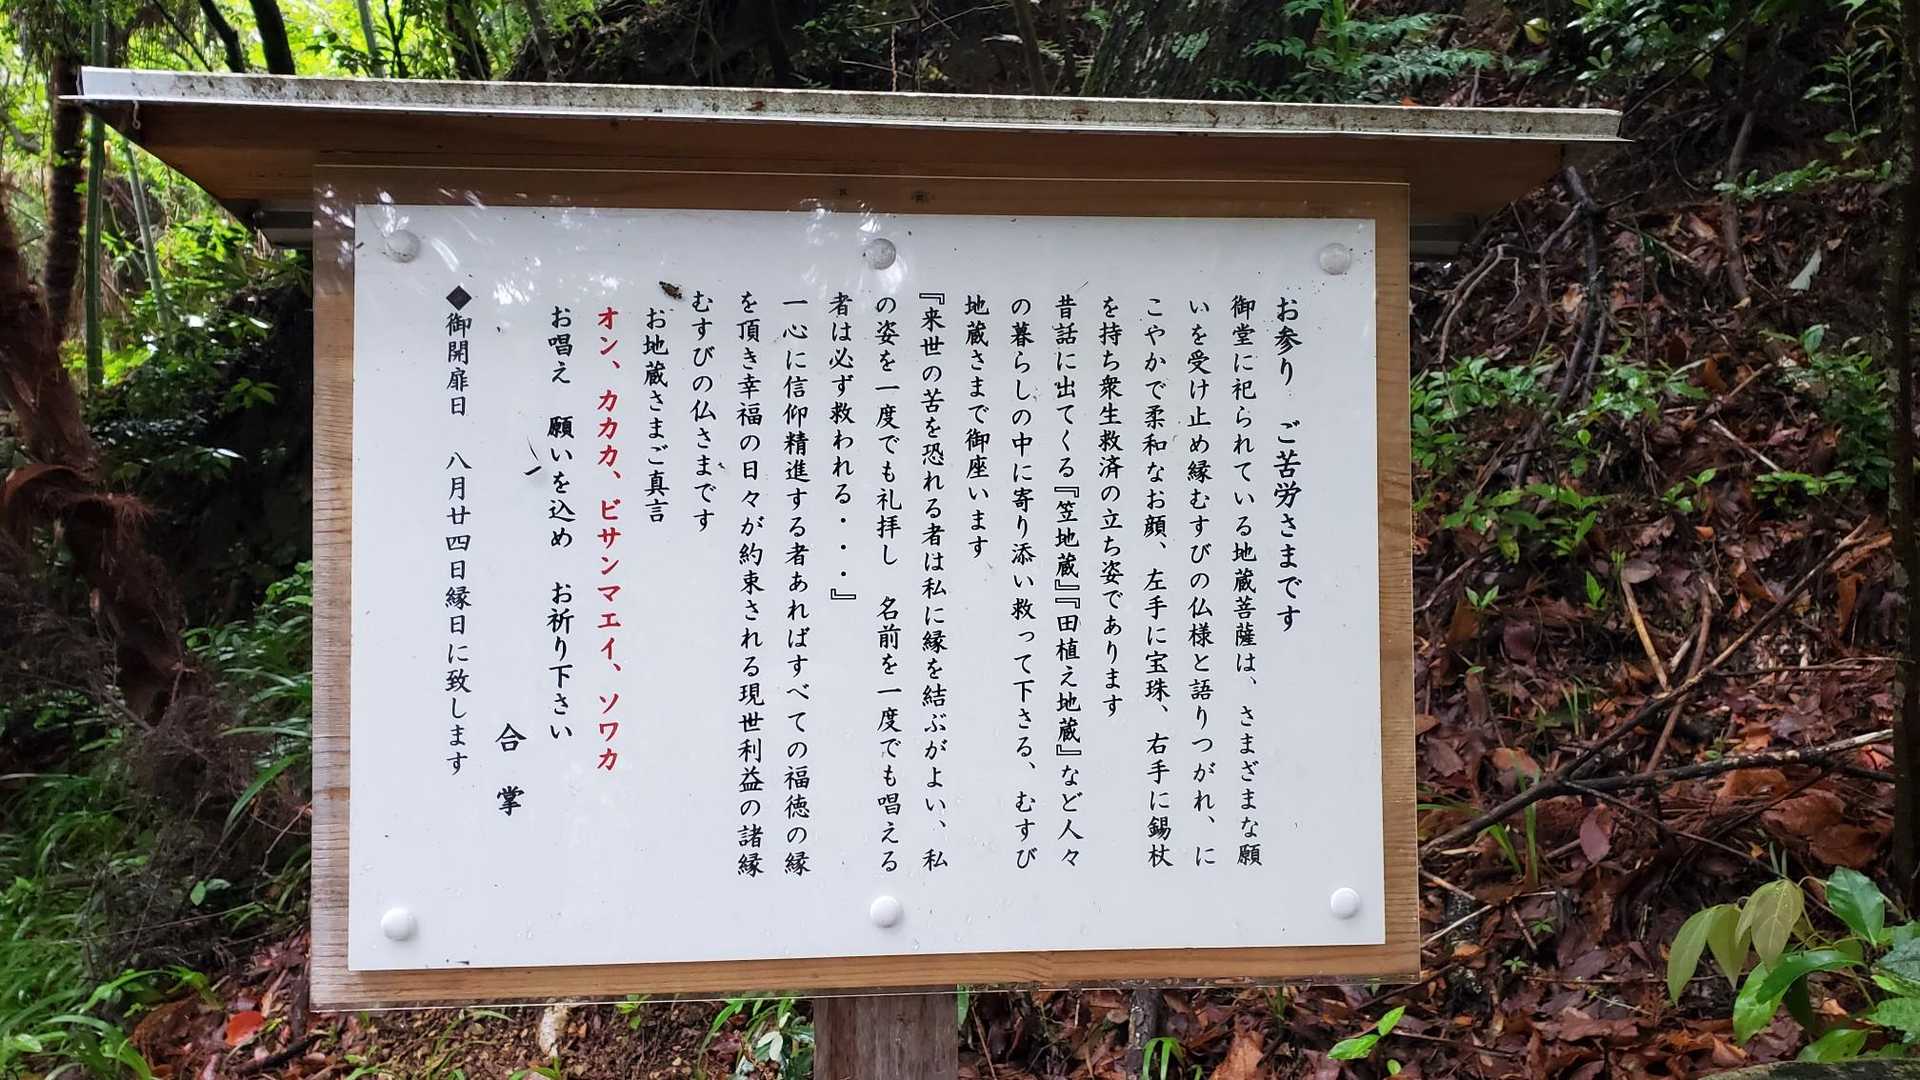 お参り ご苦労さまです
御堂に祀られている地蔵菩薩は、さまざまな願
いを受け止め縁むすびの仏様と語りつがれ、に
こやかで柔和なお顔、左手に宝珠、右手に錫杖
を持ち衆生救済の立ち姿であります
昔話に出てくる『笠地蔵』『田植え地蔵』など人々
の暮らしの中に寄り添い救って下さる、むすび
地蔵さまで御座います
『来世の苦を恐れる者は私に縁を結ぶがよい、私
の姿を一度でも礼拝し 名前を一度でも唱える
者は必ず救われる・・・』
一心に信仰精進する者あればすべての福徳の縁
を頂き幸福の日々が約束される現世利益の諸縁
むすびの仏さまです
お地蔵さまご真言
オン、カカカ、ビサンマエイ、ソワカ
お唱え 願いを込め お祈り下さい
合掌
◆御開扉日 八月廿四日縁日に致します